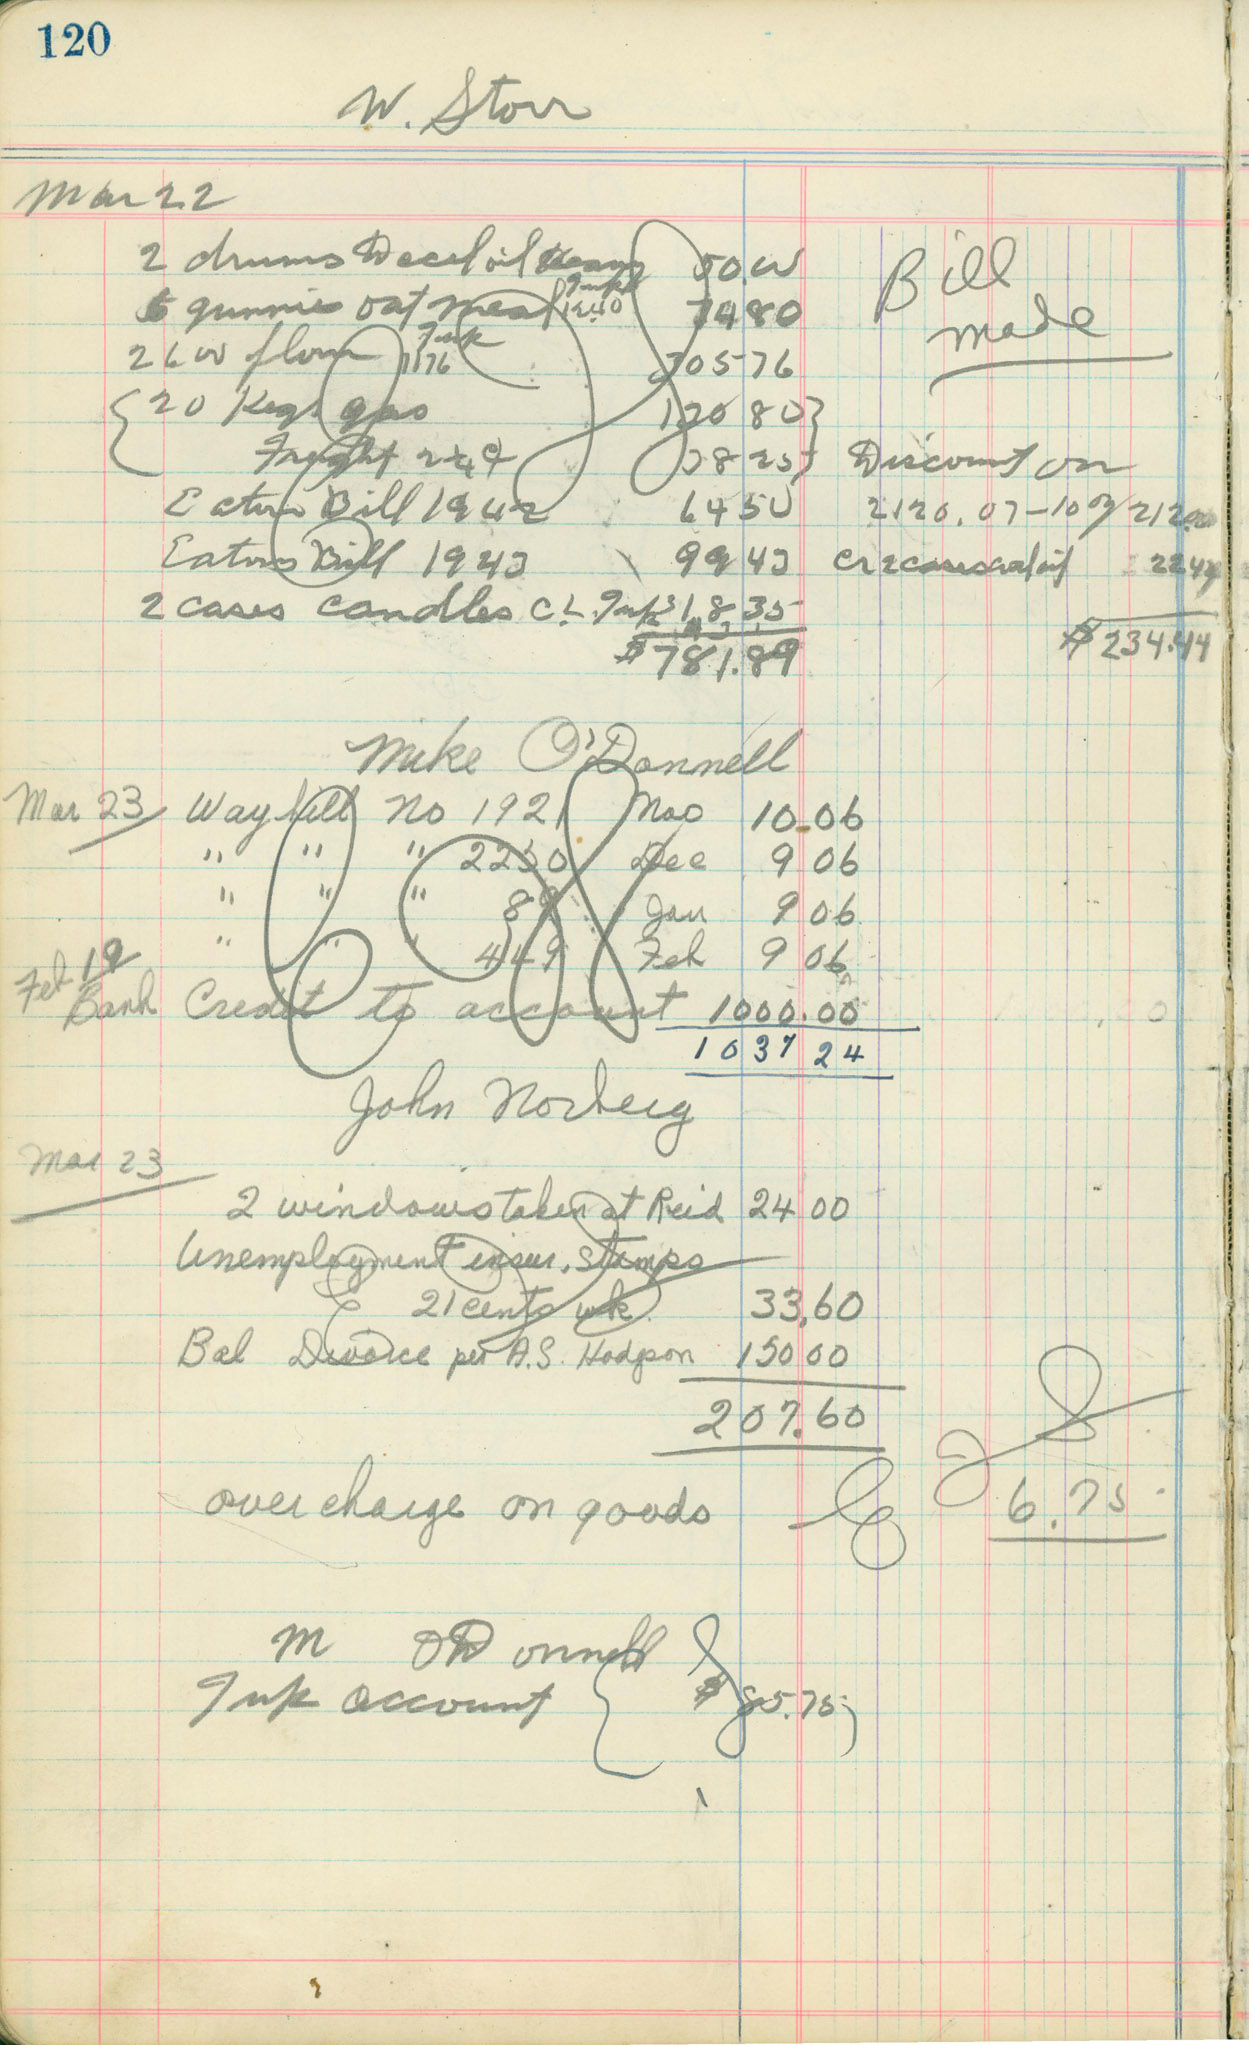 120
W. Storr
Mar 22
2 drums Diesel oil 50.00
5 gunnies oat meal Tuk 1240 74 80
26 00 flour Tuk 1176 305 76
20 Kegs gas 120 80
Freight 2¼¢ 38 25
Eatons Bill 1942 64 50
Eatons Bill 1943 99 43
2 cases candles C.L. Tuk 18.35
$781.89
Bill
made
Discount on
2120.07 - 10% 212.00
cr 2 cases coal oil 22 44
$234.44
Mike O'Donnell
Mar 23 Way bill No 1921 Nov 10.06
" " " 2250 Dec 9 06
" " " 89 Jan 9 06
" " " 449 Feb 9 06
Feb 19
Bank Credit to account 1000.00
1037 24
John Norberg
Mar 23
2 windows taken at Reid 24 00
Unemployment insur. Stamps
21 cents wk. 33.60
Bal Divorce per A.S. Hodgson 150 00
207.60
over charge on goods 6.75
M O'Donnell
Tuk account $85.75